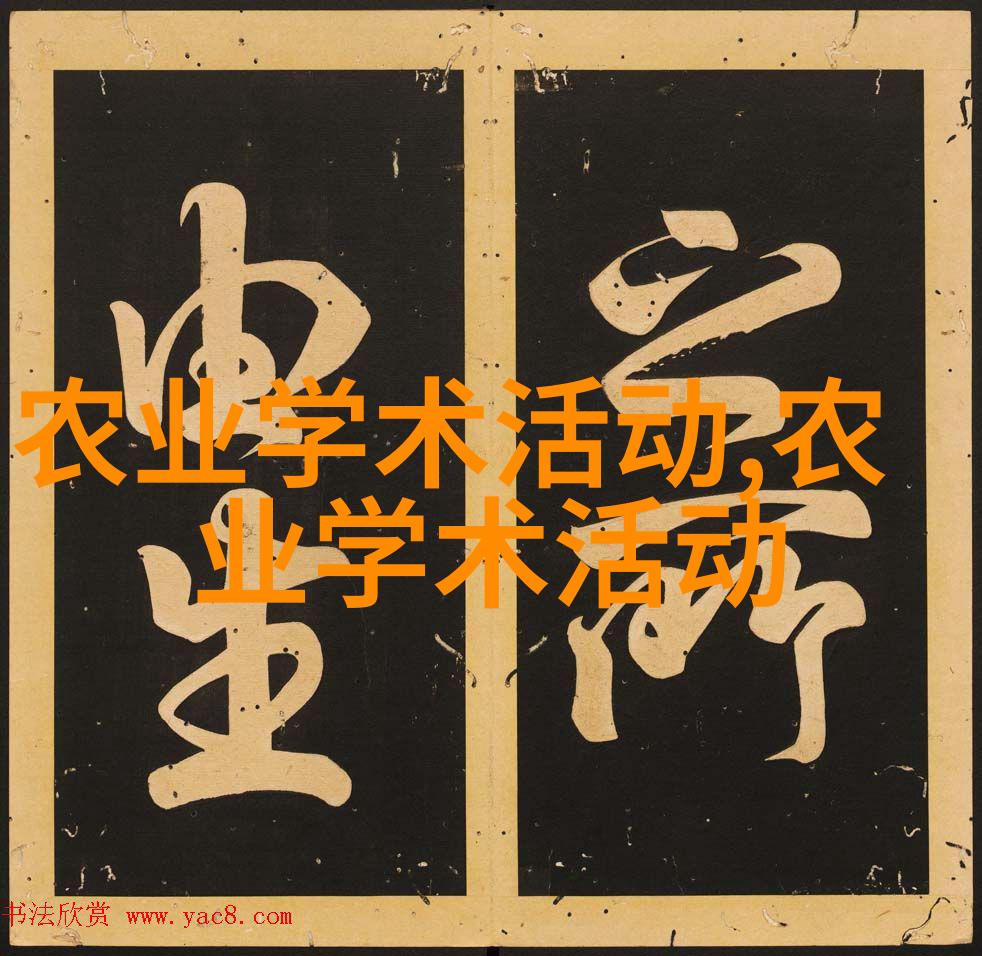 之所
由生
农业学术活动,农
业学术活动
书法欣赏 www.yac8.com